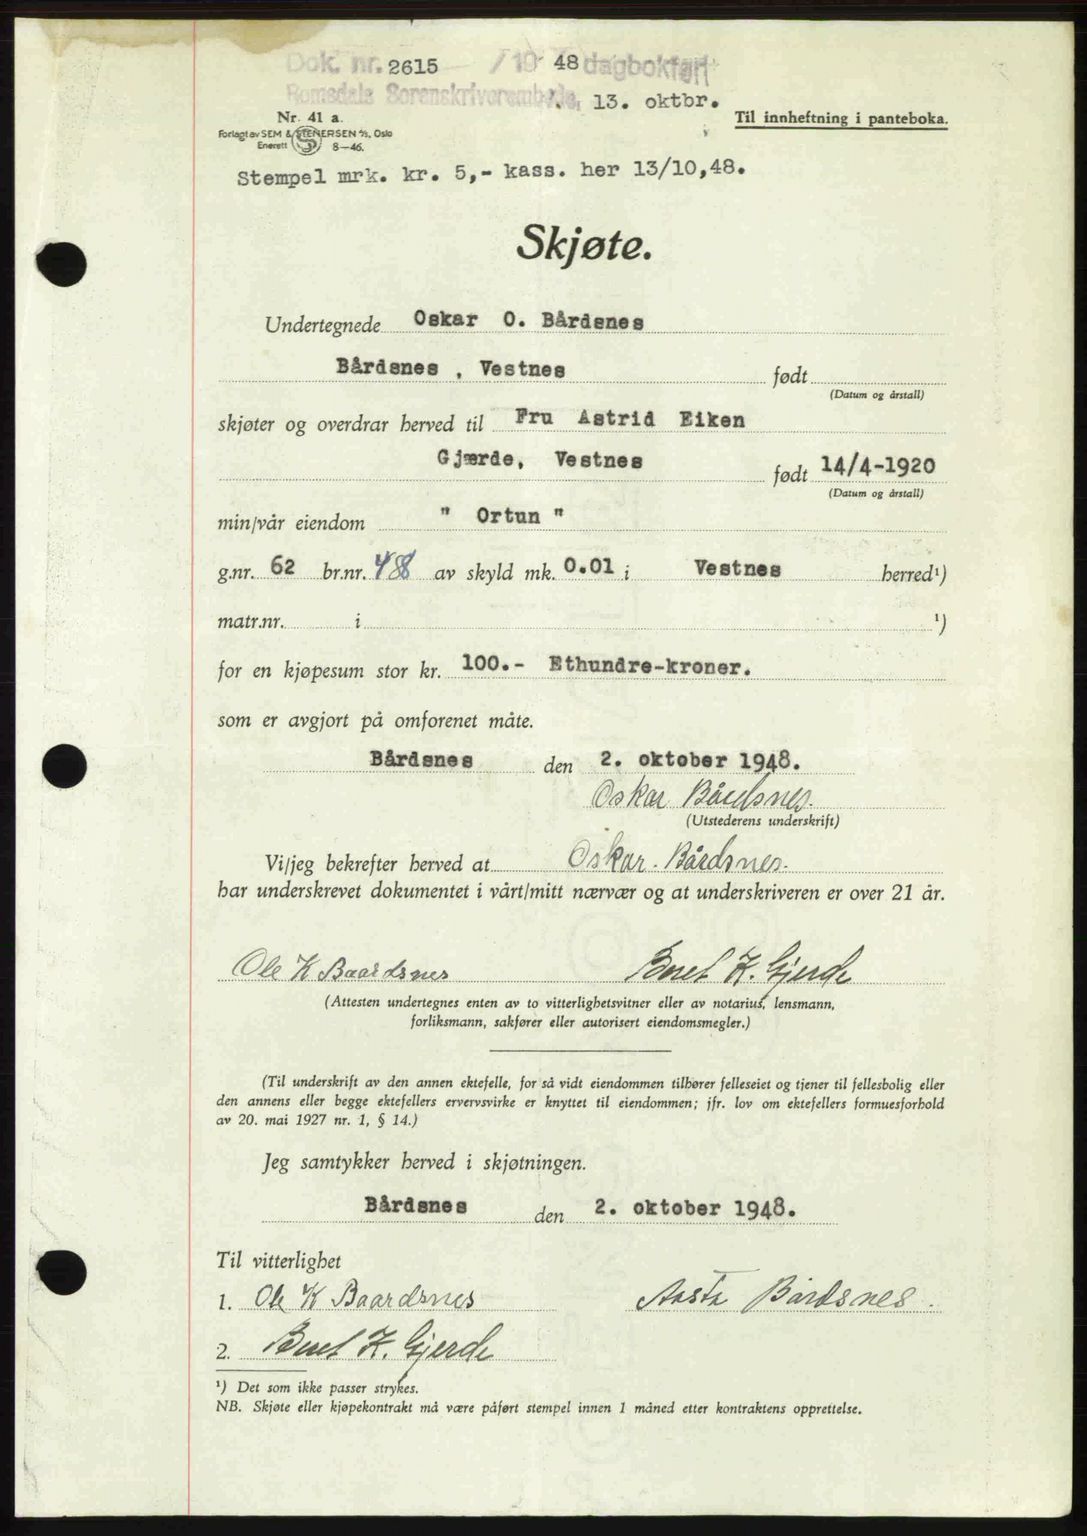 Dok. nr. 2615 / 19 48 dagbokført
Romsdals Sorenskriverembede, 13. oktbr.
Nr. 41 a.
Til innheftning i panteboka.
Forlagt av SEM & STENERSEN A/S, Oslo
Enerett 8—46.
Stempel mrk. kr. 5,- kass. her 13/10,48.
Skjøte.
Undertegnede Oskar O. Bårdsnes
Bårdsnes , Vestnes født
(Datum og årstall)
skjøter og overdrar herved til Fru Astrid Eiken
Gjærde, Vestnes født 14/4-1920
(Datum og årstall)
min/vår eiendom " Ortun "
g.nr. 62 br.nr. 488 av skyld mk. 0.01 i Vestnes herred¹)
matr.nr. i ¹)
for en kjøpesum stor kr. 100.- Ethundre-kroner.
som er avgjort på omforenet måte.
Bårdsnes den 2. oktober 1948.
Oskar Bårdsnes.
(Utstederens underskrift)
Vi/jeg bekrefter herved at Oskar. Bårdsnes.
har underskrevet dokumentet i vårt/mitt nærvær og at underskriveren er over 21 år.
Ole K Baardsnes Beret K. Gjerde
(Attesten undertegnes enten av to vitterlighetsvitner eller av notarius, lensmann,
forliksmann, sakfører eller autorisert eiendomsmegler.)
(Til underskrift av den annen ektefelle, for så vidt eiendommen tilhører felleseiet og tjener til fellesbolig eller
den annens eller begge ektefellers ervervsvirke er knyttet til eiendommen; jfr. lov om ektefellers formuesforhold
av 20. mai 1927 nr. 1, § 14.)
Jeg samtykker herved i skjøtningen.
Bårdsnes den 2. oktober 1948.
Til vitterlighet
1. Ole K Baardsnes Aasta Bårdsnes.
2. Beret K. Gjerde
¹) Det som ikke passer strykes.
NB. Skjøte eller kjøpekontrakt må være påført stempel innen 1 måned etter kontraktens opprettelse.